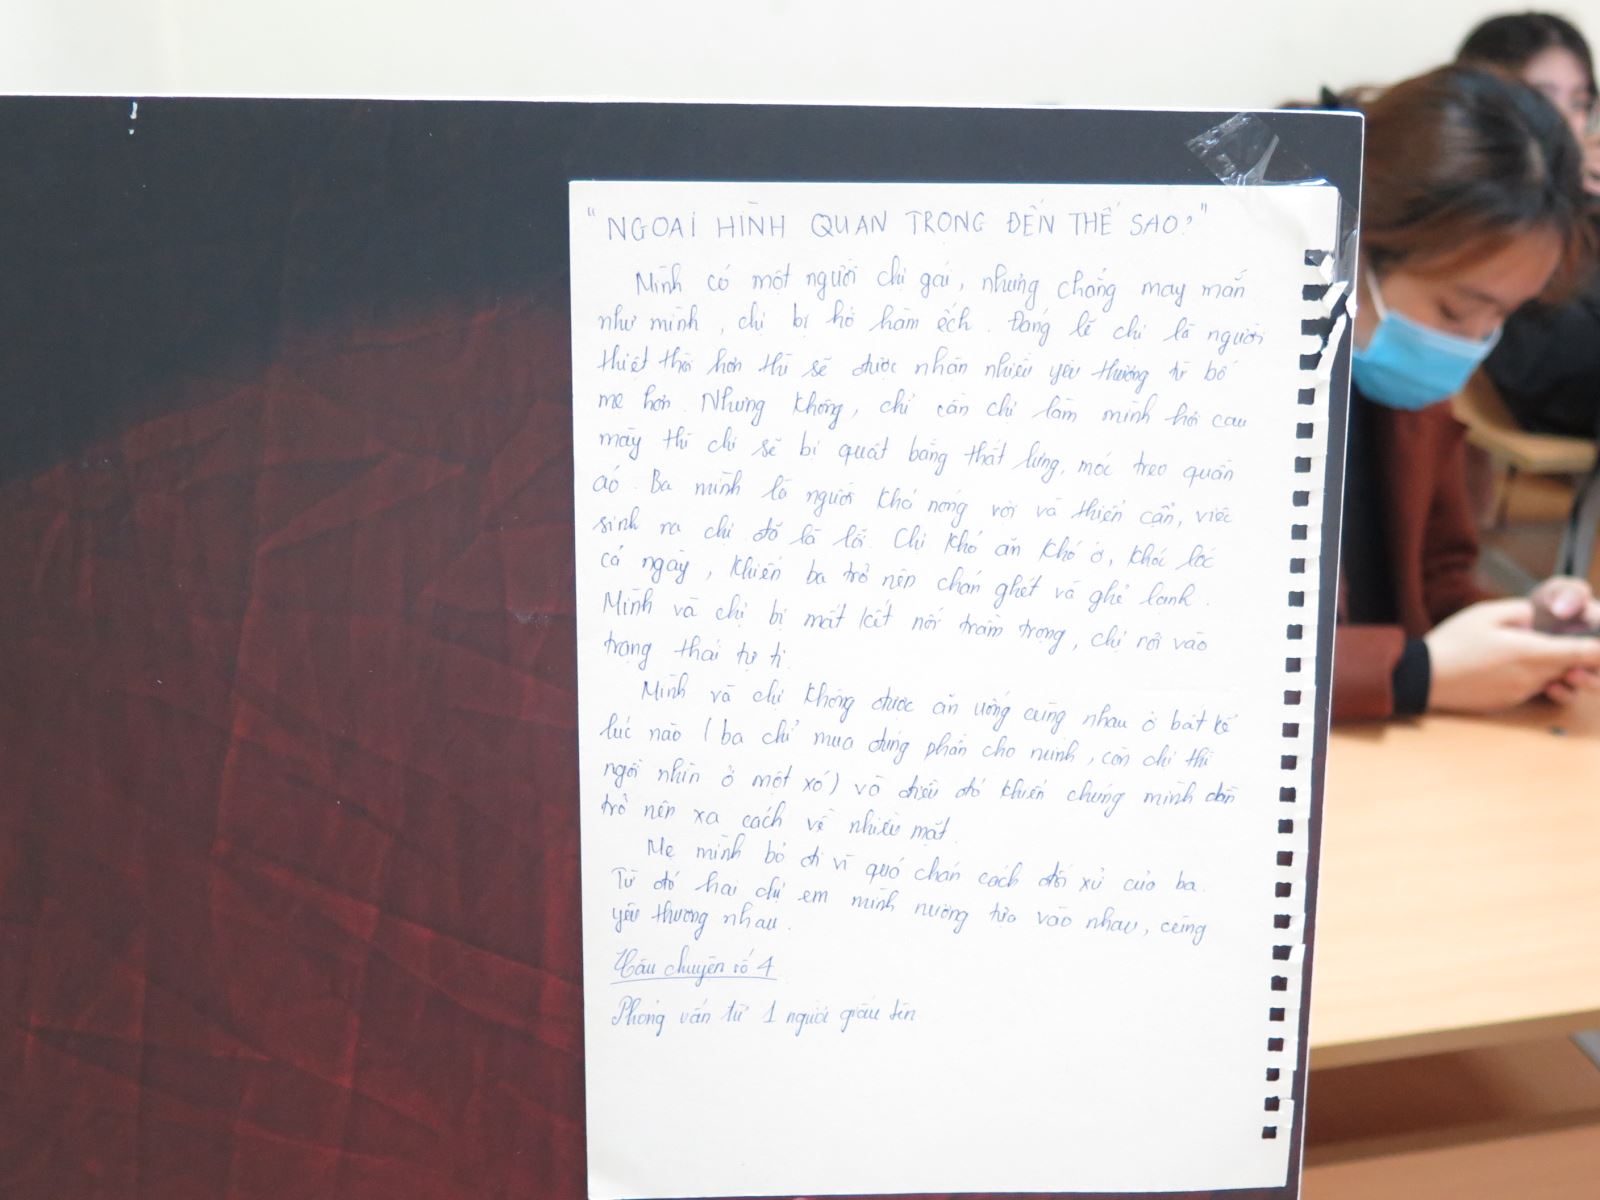 "NGOẠI HÌNH QUAN TRỌNG ĐẾN THẾ SAO?"
Mình có một người chị gái, nhưng chẳng may mắn
như mình, chị bị hở hàm ếch. Đáng lẽ chị là người
thiệt thòi hơn thì sẽ được nhận nhiều yêu thương từ bố
mẹ hơn. Nhưng không, chỉ cần chị làm mình hơi cau
mày thì chị sẽ bị quật bằng thắt lưng, móc treo quần
áo. Ba mình là người khá nóng vội và thiển cận, việc
sinh ra chị đã là lỗi. Chị khó ăn khó ở, khóc lóc
cả ngày, khiến ba trở nên chán ghét và ghẻ lạnh.
Mình và chị bị mất kết nối trầm trọng, chị rơi vào
trạng thái tự ti.
Mình và chị không được ăn uống cùng nhau ở bất kể
lúc nào (ba chỉ mua đúng phần cho mình, còn chị thì
ngồi nhìn ở một xó) và điều đó khiến chúng mình dần
trở nên xa cách về nhiều mặt.
Mẹ mình bỏ đi vì quá chán cách đối xử của ba.
Từ đó hai chị em mình nương tựa vào nhau, cùng
yêu thương nhau.
Câu chuyện số 4
Phỏng vấn từ 1 người giấu tên